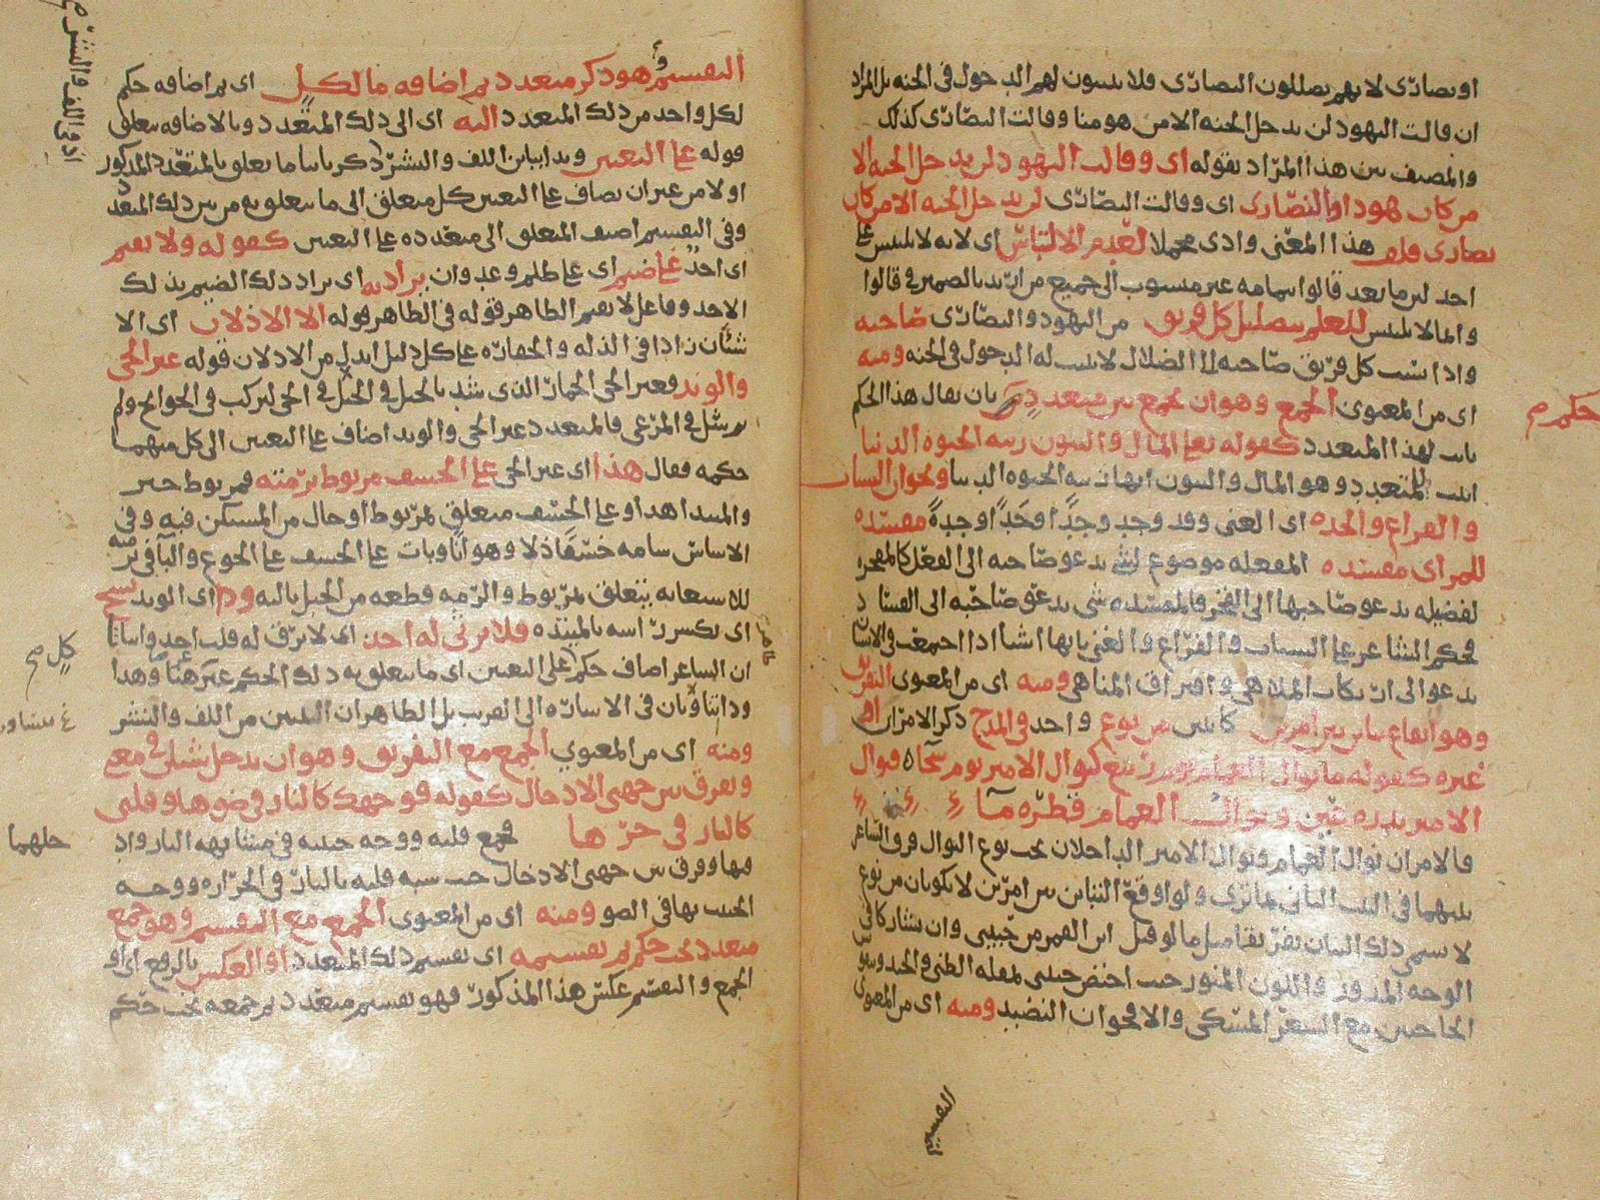 او نصارى لانهم يضللون النصارى فلا يثبتون لهم الدخول فى الجنه بل المراد
ان قالت اليهود لن يدخل الجنه الا من هو منا وقالت النصارى كذلك
والمصنف بين هذا المراد بقوله اى وقالت اليهود لن يدخل الجنه الا
من كان هودا والنصارى اى وقالت النصارى لن يدخل الجنه الا من كان
نصارى فلف هذا المعنى وادى مجملا لعدم الالتباس اى لانه لا يلتبس على
احد ان ما بعد قالوا بتمامه غير منسوب الى جميع من اريد بالضمير فى قالوا
وانما لا يلتبس للعلم بتضليل كل فريق من اليهود والنصارى صاحبه
واذا كل فريق صاحبه الضلال لا يثبت له الدخول فى الجنه ومنه
اى من المعنوى الجمع وهو ان يجمع بين متعدد بان يقال هذا الحكم
ثابت لهذا المتعدد كقوله تعالى المال والبنون زينه الحيوه الدنيا
اثبت للمتعدد وهو المال والبنون انها زينه الحيوه الدنيا ونحو ان الشباب
والفراغ والجده اى الغنى وقد وجد وجدا وجدة مفسده
للمرء اى مفسده المفعله موضوع لشئ يدعو صاحبه الى الفعل
لفضيله يدعو صاحبها الى فالمفسده شئ يدعو صاحبه الى الفساد
فحكم الشاعر على الشباب والفراغ والغنى بانها اشيا اذا اجتمعت فى الانسان
يدعو الى ارتكاب الملاهى واقتراف المناهى ومنه اى من المعنوى التفريق
وهو ايقاع تباين بين امرين كاينين من نوع واحد فى المدح ذكر الامران او
غيره كقوله ما نوال الغمام يوم ربيع كنوال الامير يوم سخاء فنوال
الامير بدره عين ونوال الغمام قطره ماء
فالامران نوال الغمام ونوال الامير الداخلان تحت نوع النوال فرق الشاعر
بينهما فى البيت الثانى كما ترى ولو اوقع التباين بين امرين لا يكونان من نوع
لا يسمى ذلك التباين تفريقا مثل ما لو قيل اين القمر من حبيبى وان تشاركا فى
الوجه المدور واللون المنور حيث اختص حبيبى بمقله الظبى والخد
الحاجبين مع الشعر المسكى والاقحوان النضيد ومنه اى من المعنوى
التقسيم
حكم صح
التقسيم وهو ذكر متعدد ثم اضافه ما لكل اى ثم اضافه حكم
لكل واحد من ذلك المتعدد اليه اى الى ذلك المتعدد وبالاضافه يتعلق
قوله على التعيين وبه اللف والنشر ذكر ما يتعلق بالمتعدد المذكور
اولا من غير ان يضاف على التعيين كل متعلق الى ما يتعلق به من بين ذلك المتعدد
وفى التقسيم اضيف المتعلق الى متعدده على التعيين كقوله ولا يقيم
اى احد على ضيم اى على ظلم وعدوان يراد به اى يراد ذلك الضيم بذلك
الاحد وفاعل لا يقيم الظاهر قوله فى الظاهر قوله الا الاذلان اى الا
شيئان زادا فى الذله والحقاره على كل ذليل ابدل من الاذلان قوله عير الحى
والوتد فعير الحى الحمار الذى شد بالحبل فى الحى ليركب فى الحوائج ولم
يرسل فى المرعى فالمتعدد عير الحى والوتد اضاف على التعيين الى كل منهما
حكمه فقال هذا اى عير الحى على الخسف مربوط برمته فمربوط خبر
والمبتدا هذا وعلى الخسف متعلق بمربوط او حال من المستكن فيه وفى
الاساس سامه خسفا ذلا وهوانا وبات على الخسف على الجوع والبا فى برمته
للاستعانه يتعلق بمربوط والرمه قطعه من الحبل باليه وذا اى الوتد يشج
اى يكسر راسه بالميتده فلا يرثى له احد اى لا يرق له قلب احد واما
ان الشاعر اضاف حكم على التعيين اى ما يتعلق به ذلك الحكم عير هنا وهذا
وذا يتساويان فى الاشاره الى القريب بل الظاهر ان البيتين من اللف والنشر
ومنه اى من المعنوي الجمع مع التفريق وهو ان يدخل شيئان فى معنى
ويفرق بين جهتى الادخال كقوله فوجهك كالنار فى ضوها وقلبى
كالنار فى حرها فجمع قلبه ووجه حبيبه فى مشابهه النار واد
خلهما فيها وفرق بين جهتى الادخال حيث شبه قلبه بالنار فى الحراره ووجه
الحبيب بها فى الضو ومنه اى من المعنوى الجمع مع التقسيم وهو جمع
متعدد تحت حكم ثم تقسيمه اى تقسيم ذلك المتعدد او العكس بالرفع اى او
الجمع والتقسيم عكس هذا المذكور فهو تقسيم متعدد ثم جمعه تحت حكم
كل صح